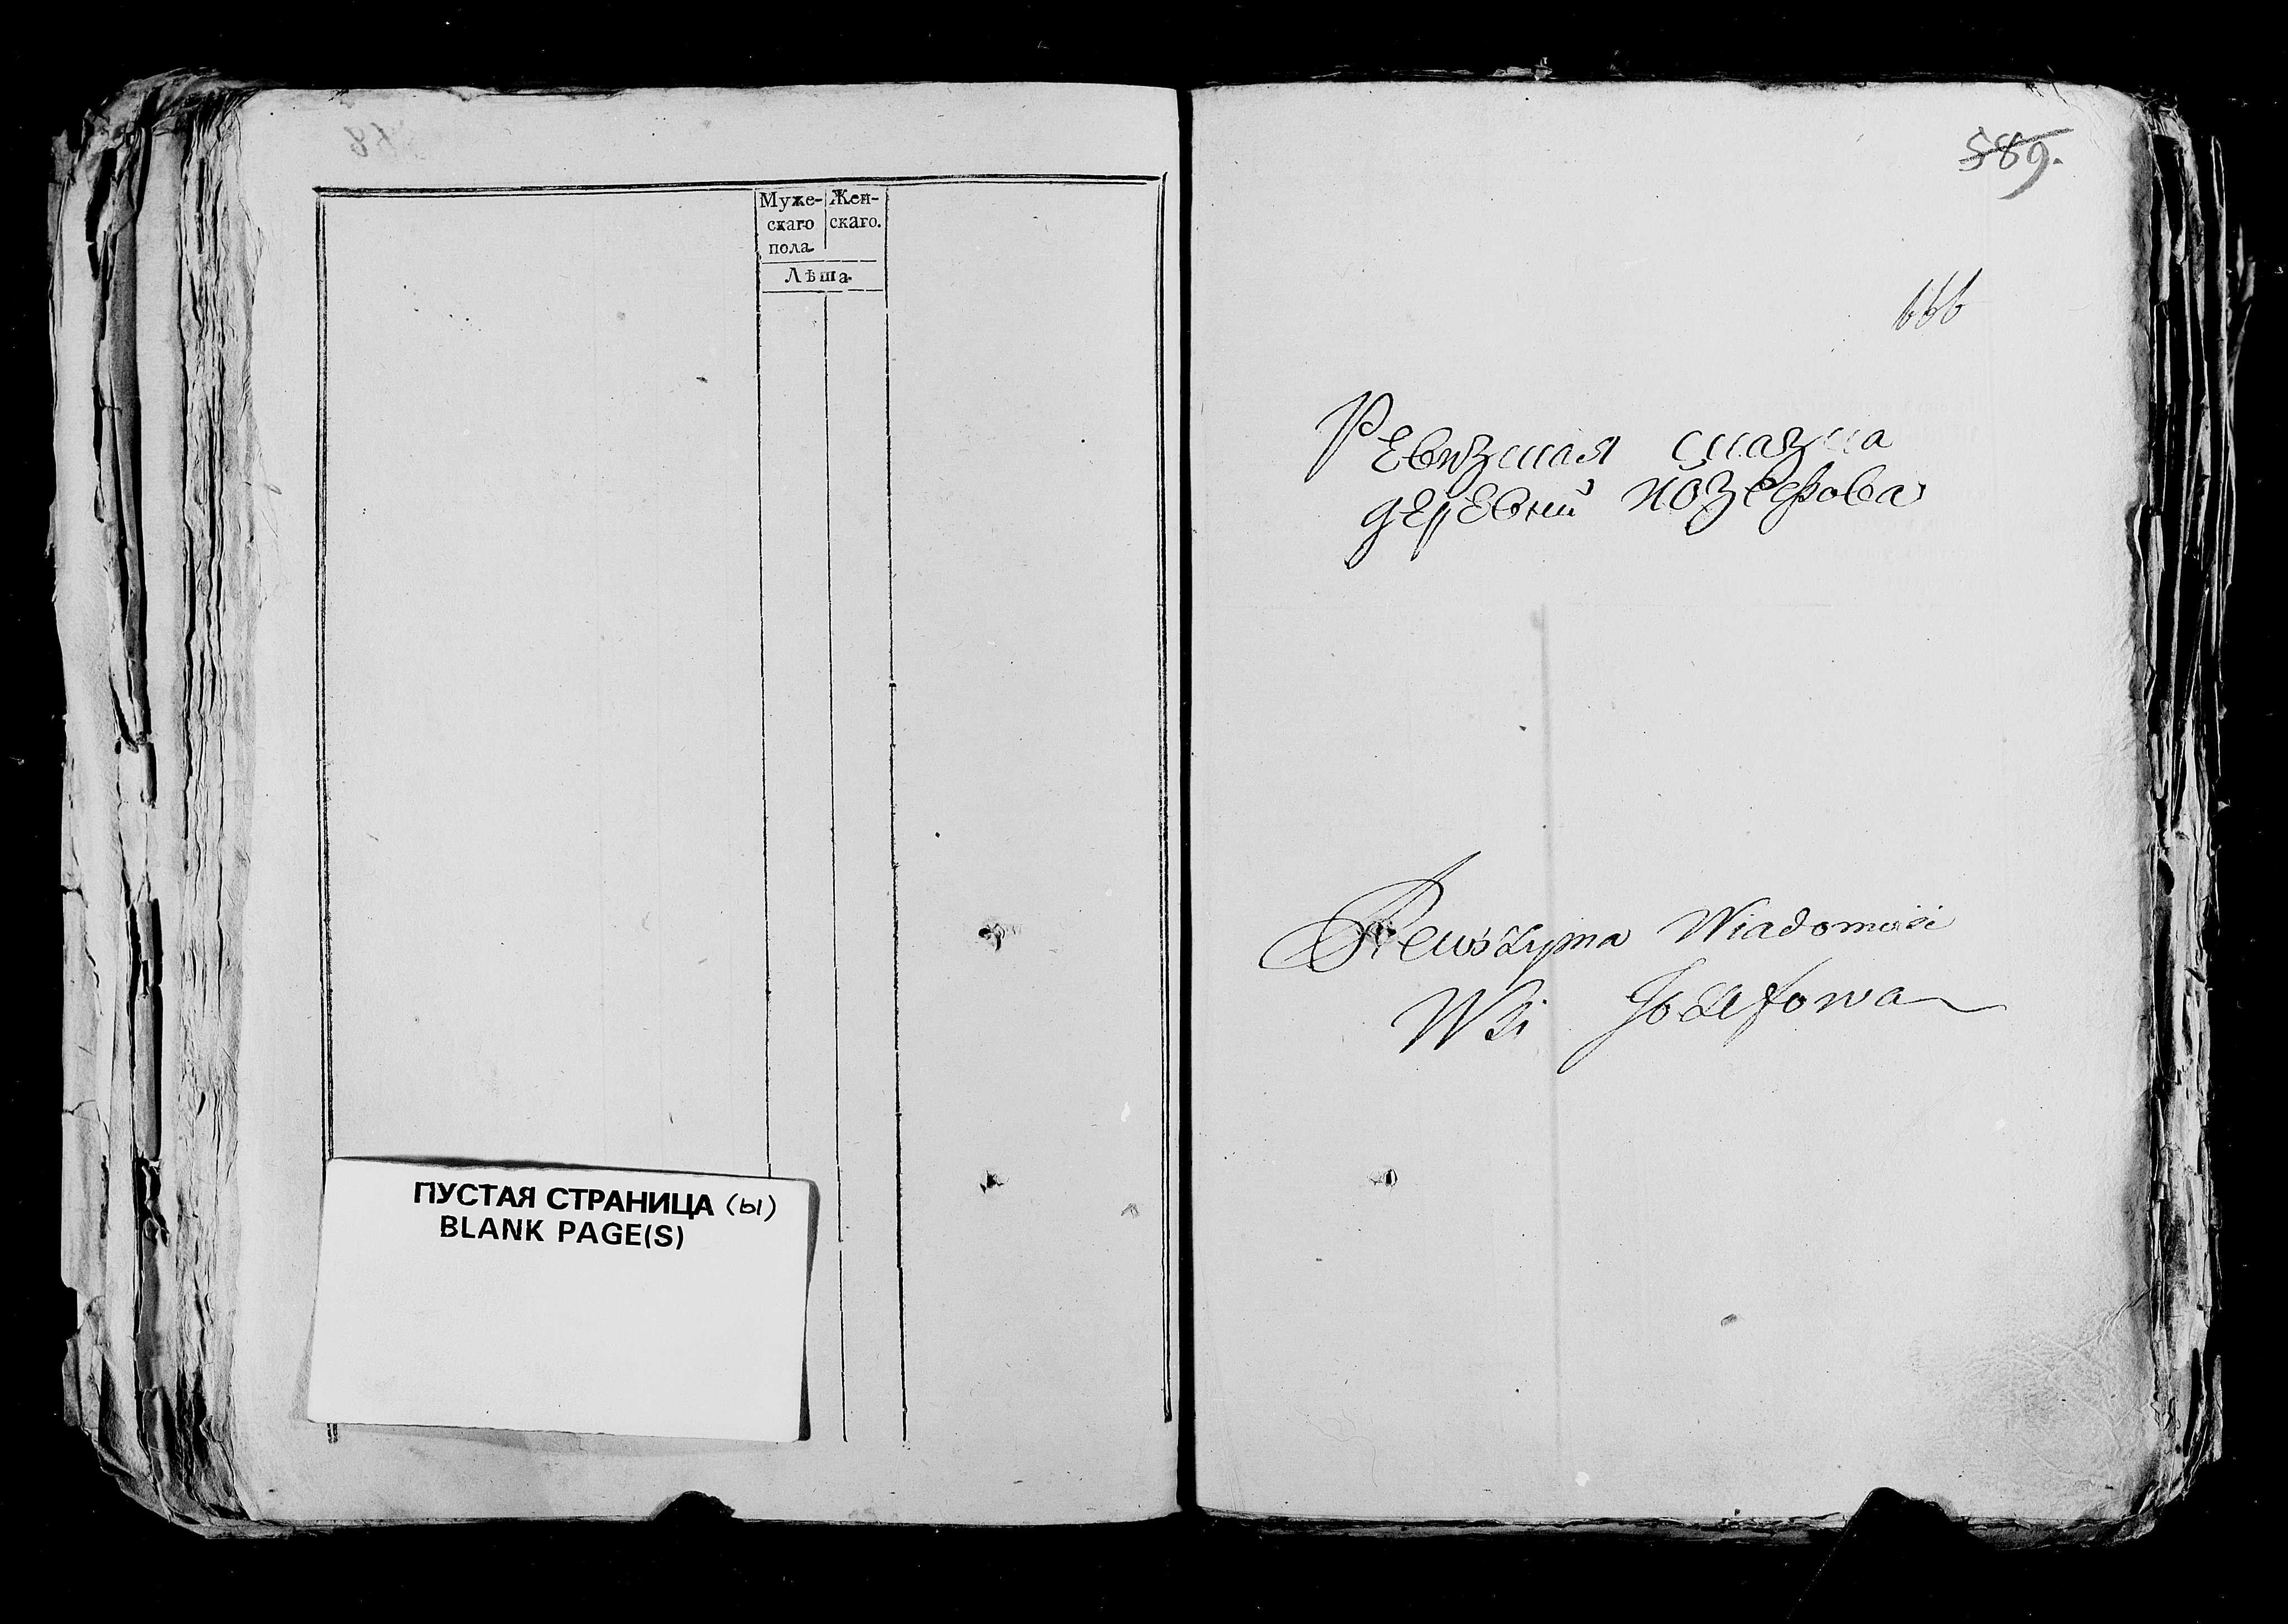 Муже-
скаго
пола.
Жен-
скаго.
Лѣта.
ПУСТАЯ СТРАНИЦА (ы)
BLANK PAGE(S)
589.
666
Ревизская сказка
деревни Юзефова
Rewizyjna Wiadomość
Wsi Jozefowa